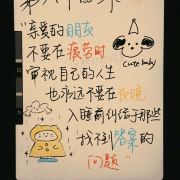 "亲爱的朋友
不要在疲劳时
审视自己的人生
也永远不要在夜晚
入睡前纠结于那些
找不到答案的
问题"
cute baby